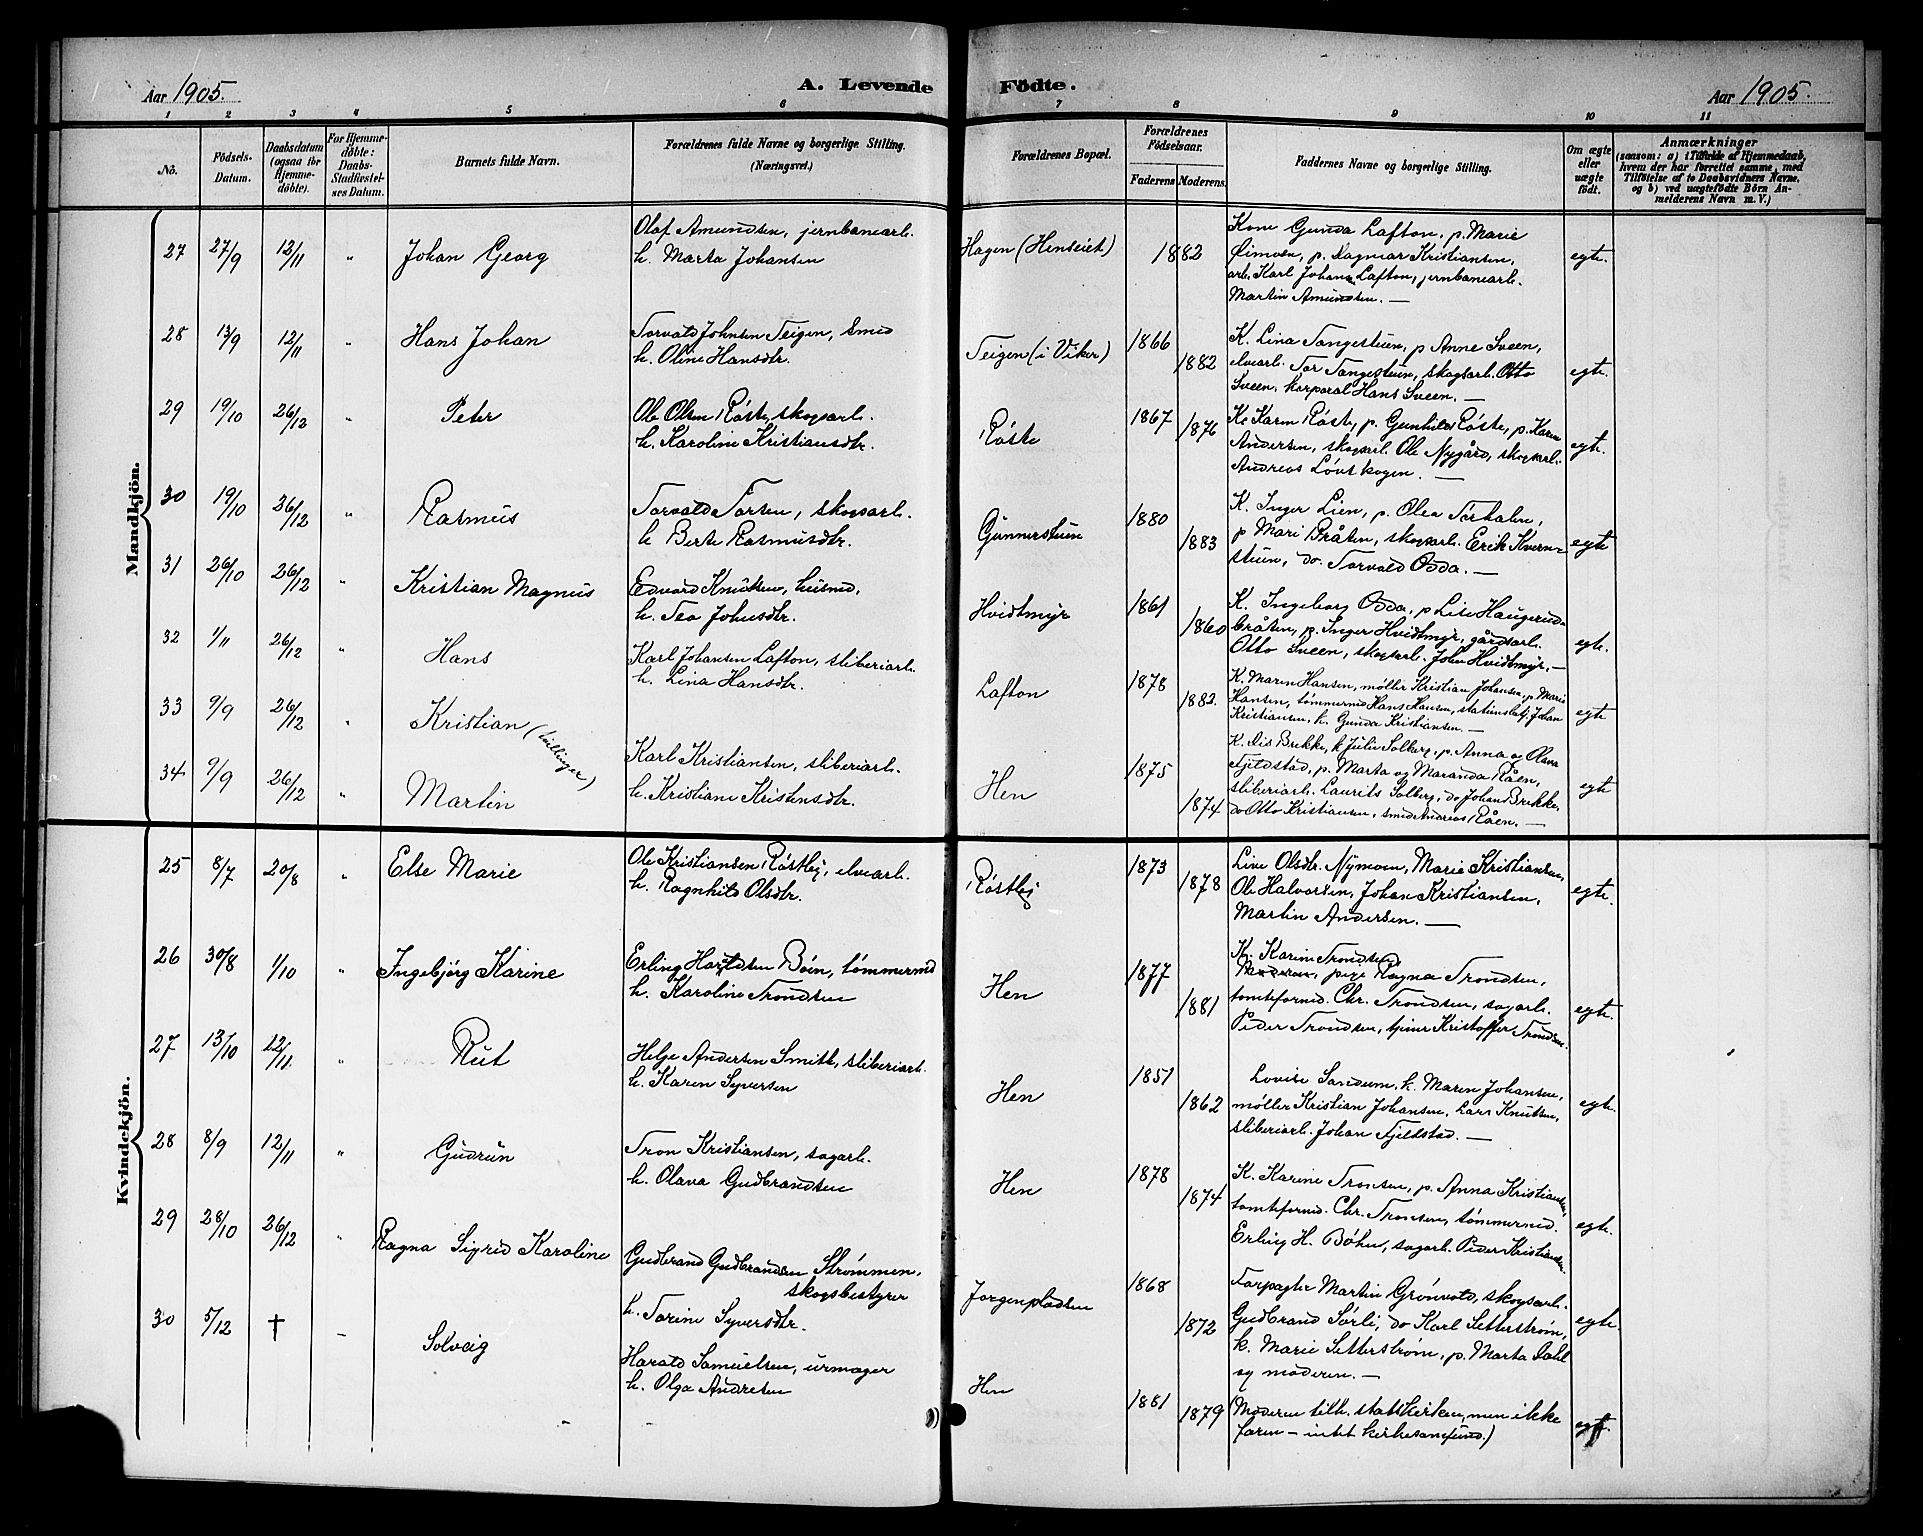 Aar 1905. A. Levende Födte. Aar 1905.
1 2 3 4 5 6 7 8 9 10 11
No.
Födsels-Datum.
Daabsdatum (ogsaa for Hjemme-döbte).
For Hjemme-döbte: Daabs-Stadfæstel-ses Datum.
Barnets fulde Navn.
Forældrenes fulde Navne og borgerlige Stilling. (Næringsvei.)
Forældrenes Bopæl.
Forældrenes Födselsaar.
Faderens. Moderens.
Faddernes Navne og borgerlige Stilling.
Om ægte eller uægte födt.
Anmærkninger
(saasom: a) i Tilfælde af Hjemmedaab,
hvem der har forrettet samme, med
Tilföielse af to Daabsvidners Navne,
og b) ved uægtefödte Börn An-
melderens Navn m. V.)
Mandkjön.
27 27/9 12/11 " Johan Georg
Olaf Amundsen, jernbanearb.
h. Marta Johansen
Hagen (Henseiet) 1882
Kone Gunda Lafton, p. Marie
Eimoen, p. Dagmar Kristiansen,
arb. Karl Johans. Lafton, jernbanearb.
Martin Amundsen. —
egte.
28 13/9 12/11 " Hans Johan
Torvald Johnsen Teigen, smed
h. Oline Hansdtr.
Teigen (i Viker) 1866 1882
K. Lina Tangestuen, p Anne Sveen,
elvearb. Tor Tangestuen, skogsarb. Otto
Sveen, korporal Hans Sveen. —
egte.
29 19/10 26/12 " Peter
Ole Olsen Röste, skogsarb.
h. Karoline Kristiansdtr.
Röste 1867 1876
K. Karen Röste, p. Gunhild Röste, p. Karen
Andersen, skogsarb. Ole Nygård, skogsarb.
Andreas Lövskogen. —
egte.
30 19/10 26/12 " Rasmus
Torvald Torsen, skogsarb.
h Berte Rasmusdtr.
Gunnerstuen 1880 1883
K. Inger Lien, p. Olea
p Mari Bråten, skogsarb. Erik Kvern-
stuen, do. Torvald Odda. —
egte
31 26/10 26/12 " Kristian Magnus
Edvard Knutsen, husmd,
h. Tea Johnsdtr.
Hvidtmyr 1861 1860
K. Ingeborg Odda, p Lise Haugerud-
bråten, p. Inger Hvidtmyr, gårdsarb.
Otto Sveen, skogsarb. John Hvidtmyr. —
egte.
32 1/11 26/12 " Hans
Karl Johansen Lafton, sliberiarb.
h. Lina Hansdtr.
Lafton 1878 1882.
K. Maren Hansen, møller Kristian Johansen, p. Marie
Hansen, tømmermd Hans Hansen, stationsbetj. Johan
Kristiansen, k. Gunda Kristiansen. —
egte
33 9/9 26/12 " Kristian (tvillinger)
34 9/9 26/12 " Martin
Karl Kristiansen, sliberiarb.
h. Kristiane Kristensdtr.
Hen 1875 1874
K. Dis Brekke, k Julie Solberg, p. Anna og Olava
Fjeldstad, p. Marta og Maranda Råen,
sliberiarb. Laurits Solberg, do Johan Brekke,
do Otto Kristiansen, smed Andreas Råen. —
egte
Kvindekjön.
25 8/7 20/8 " Else Marie
Ole Kristiansen Röstbej, elvearb.
h. Ragnhild Olsdtr.
Röstbej 1873 1878
Live Olsdtr. Nymoen, Marie Kristiansen,
Ole Halvorsen, Johan Kristiansen,
Martin Andersen. —
egte.
26 30/8 1/10 " Ingebjörg Karine
Erling Haraldsen Böen, tömmermd
h. Karoline Trondsen
Hen 1877 1881
K. Karine Trondsen,
Moderen, pige Ragna Trondsen,
tomteformd. Chr. Trondsen, sagarb.
Peder Trondsen, tjener Kristoffer Trondsen.
egte.
27 13/10 12/11. " Rut
Helge Andersen Smith, sliberiarb.
h. Karen Syversen
Hen 1851 1862
Lovise Sandum, k. Maren Johansen,
møller Kristian Johansen, Lars Knutsen,
sliberiarb. Johan Fjeldstad. —
egte.
28 8/9 12/11 " Gudrun
Tron Kristiansen, sagarb.
h. Olava Gudbrandsen
Hen 1878 1874
K. Karine Tronsen, p. Anna Kristiansen,
tomteformd. Chr. Tronsen, tømmermd.
Erling H. Bøhn, sagarb. Peder Kristiansen.
egte.
29 28/10 26/12 " Ragna Sigrid Karoline
Gudbrand Gudbrandsen Strømmen,
skogsbestyrer
h. Torine Syversdtr.
Jorgenpladsen 1868 1872
Forpagter Martin Grønvold, skogsarb.
Gudbrand Sørli, do Karl Setterstrøm,
k. Marie Setterstrøm, p. Marta Dahl
og moderen. —
egte.
30 5/12 † — Solveig
Harald Samuelsen, urmager
h. Olga Andresen
Hen 1881 1879
(Moderen tilh. statskirken, men ikke
faren – intet kirkesamfund.)
egte.